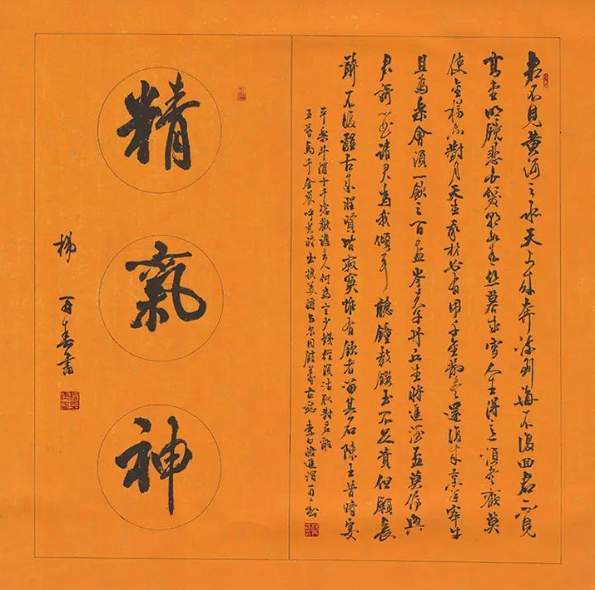 君不見黃河之水天上來奔流到海不復回君不見
高堂明鏡悲白髮朝如青絲暮成雪人生得意須盡歡莫
使金樽空對月天生我材必有用千金散盡還復來烹羊宰牛
且為樂會須一飲三百杯岑夫子丹丘生將進酒杯莫停與
君歌一曲請君為我傾耳聽鐘鼓饌玉不足貴但願長
醉不復醒古來聖賢皆寂寞惟有飲者留其名陳王昔時宴
平樂斗酒十千恣歡謔主人何為言少錢徑須沽取對君酌
五花馬千金裘呼兒將出換美酒與爾同銷萬古愁 李白將進酒
精
氣
神
楊百春書